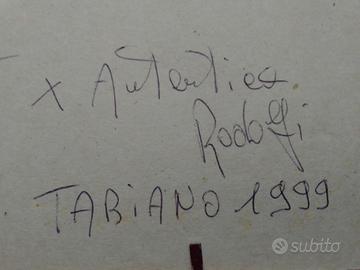 x Autentica
Rodolfi
TABIANO 1999
subito